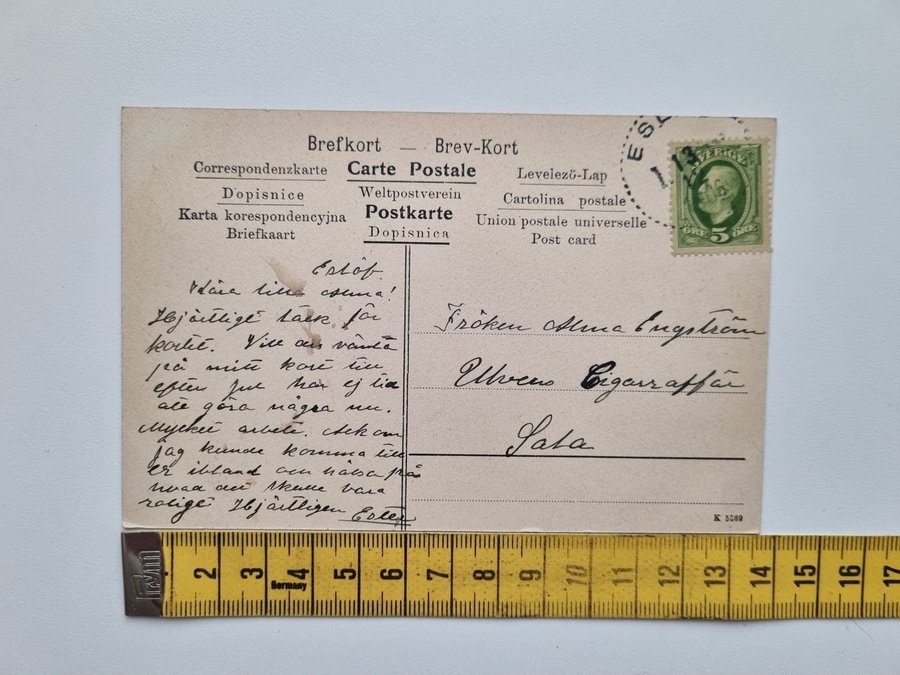 Brefkort — Brev-Kort
Correspondenzkarte Carte Postale Levelező-Lap
Dopisnice Weltpostverein Cartolina postale
Karta korespondencyjna Postkarte Union postale universelle
Briefkaart Dopisnica Post card
ESL
1 13
SVERIGE
ÖRE 5 ÖRE
Eslöf
Kära lilla Alma!
Hjärtligt tack för
kortet. Vill du vänta
på mitt kort till
efter jul har ej tid
att göra några nu.
Mycket arbete. Ack om
jag kunde komma till
er ibland och hälsa på
hvad det skulle vara
roligt Hjärtligen Ester
Fröken Alma Engström
Ulvens Cigarraffär
Sala
K 3569
2 3 4 5 6 7 8 9 10 11 12 13 14 15 16 17
Germany